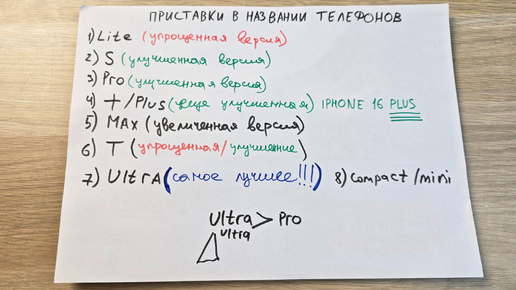 ПРИСТАВКИ В НАЗВАНИИ ТЕЛЕФОНОВ
1) Lite (упрощенная версия)
2) S (улучшенная версия)
3) Pro (улучшенная версия)
4) +/Plus (еще улучшенная) IPHONE 16 PLUS
5) MAX (увеличенная версия)
6) T (упрощенная/улучшение)
7) Ultra (самое лучшее!!!) 8) compact/mini
Ultra > Pro
Ultra